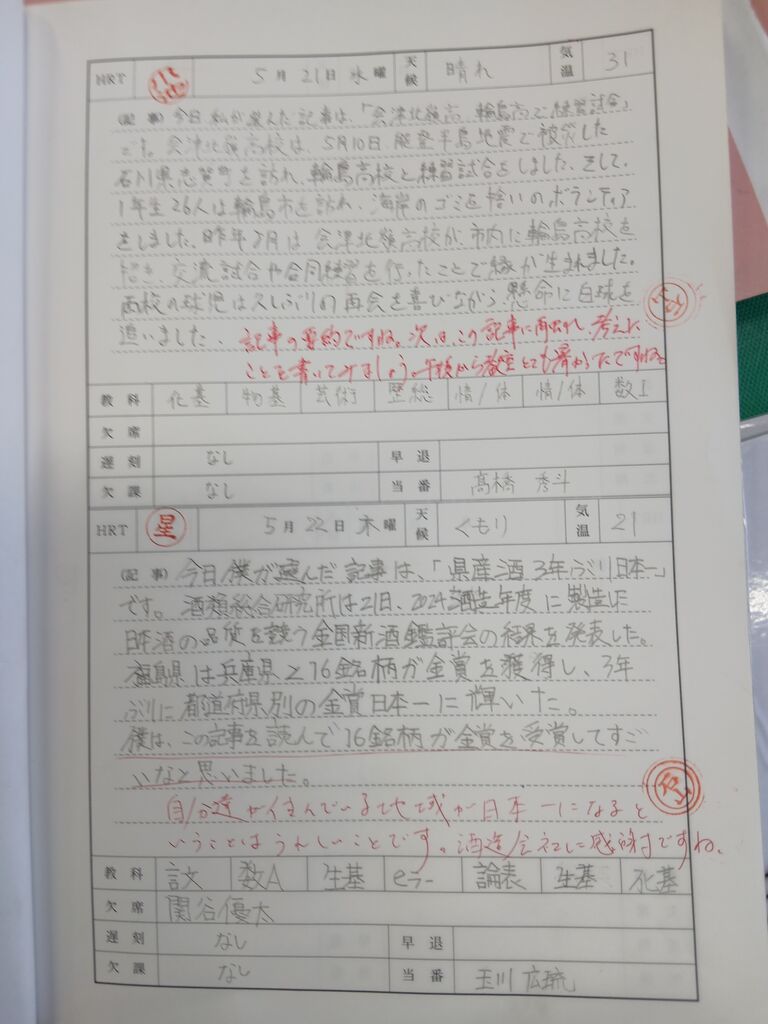 HRT 5月21日水曜 天候 晴れ 気温 31
(記事)今日私が選んだ記事は、「会津北嶺高 輪島高で練習試合」
です。会津北嶺高校は、5月10日、能登半島地震で被災した
石川県志賀町を訪れ、輪島高校と練習試合をしました。そして、
1年生26人は輪島市を訪れ、海岸のゴミを拾いのボランティア
をしました。昨年 月は会津北嶺高校が、市内に輪島高校を
招き交流試合や合同練習を行ったことで縁が生まれました。
両校の球児は久しぶりの再会を喜びながら懸命に白球を
追いました。記事の要約ですね。次は、この記事に 考えた
ことを書いてみましょう。 から教室とても暑かったですね。
教科 化基 物基 芸術 総 情/体 情/体 数I
欠席
遅刻 なし 早退
欠課 なし 当番 高橋 秀斗
HRT 星 5月22日木曜 天候 くもり 気温 21
(記事)今日僕が選んだ記事は、「県産酒3年ぶり日本一」
です。酒類総合研究所は21日、2024酒造年度に製造した
日本酒の品質を競う全国新酒鑑評会の結果を発表した。
福島県は兵庫県と16銘柄が金賞を獲得し、3年
ぶりに都道府県別の金賞日本一に輝いた。
僕は、この記事を読んで16銘柄が金賞を受賞してすご
いなと思いました。
自分達が住んでいる地域が日本一になると
いうことはうれしいことです。酒造会社に感謝ですね。
教科 言文 数A 生基 eラー 論表 生基 化基
欠席 関谷優太
遅刻 なし 早退
欠課 なし 当番 玉川 広琉